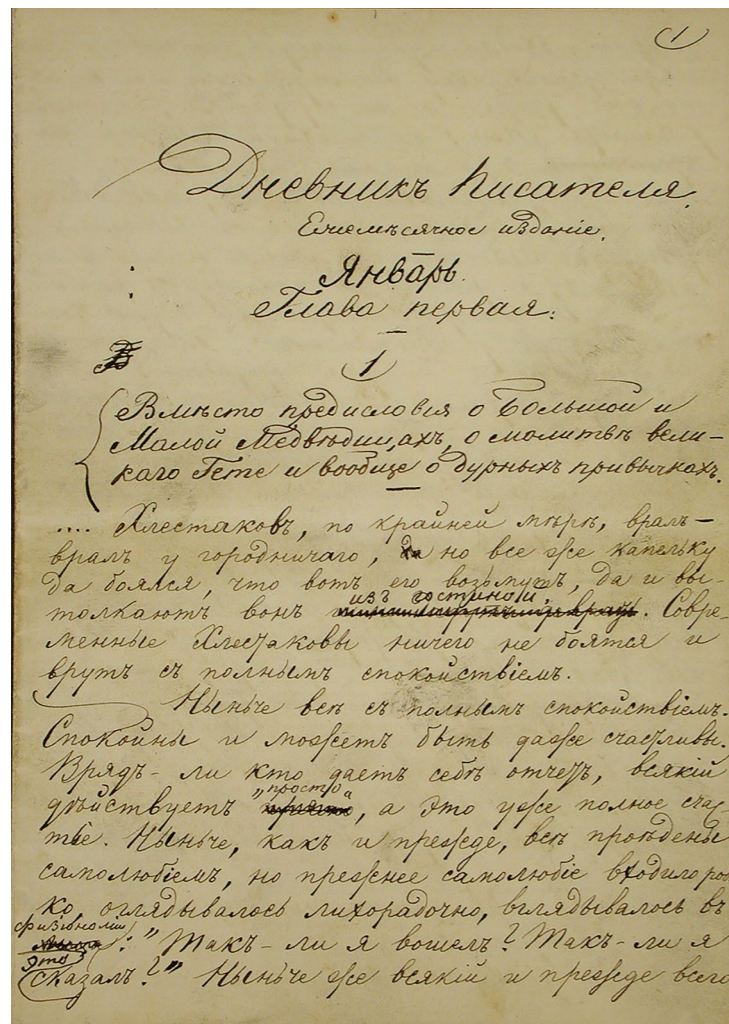 1
Дневникъ Писателя.
Ежемѣсячное изданіе.
Январь.
Глава первая.
1
Вмѣсто предисловія о Большой и
Малой Медвѣдицахъ, о молитвѣ вели-
каго Гете и вообще о дурныхъ привычкахъ.
.... Хлестаковъ, по крайней мѣрѣ, вралъ-
вралъ у городничаго, но все же капельку
да боялся, что вотъ его возьмутъ, да и вы-
изъ гостиной
толкаютъ вонъ . Совре-
менные Хлестаковы ничего не боятся и
врутъ съ полнымъ спокойствіемъ.
Нынче всѣ съ полнымъ спокойствіемъ.
Спокойны и можетъ быть даже счастливы.
Врядъ-ли кто даетъ себѣ отчетъ, всякій
„просто“
дѣйствуетъ , а это уже полное счас
тіе. Нынче, какъ и прежде, всѣ проѣдены
самолюбіемъ, но прежнее самолюбіе входило роб
ко, оглядывалось лихорадочно, вглядывалось въ
физіономіи
: "Такъ-ли я вошелъ? Такъ-ли я
это
сказалъ?" Нынче же всякій и прежде всего